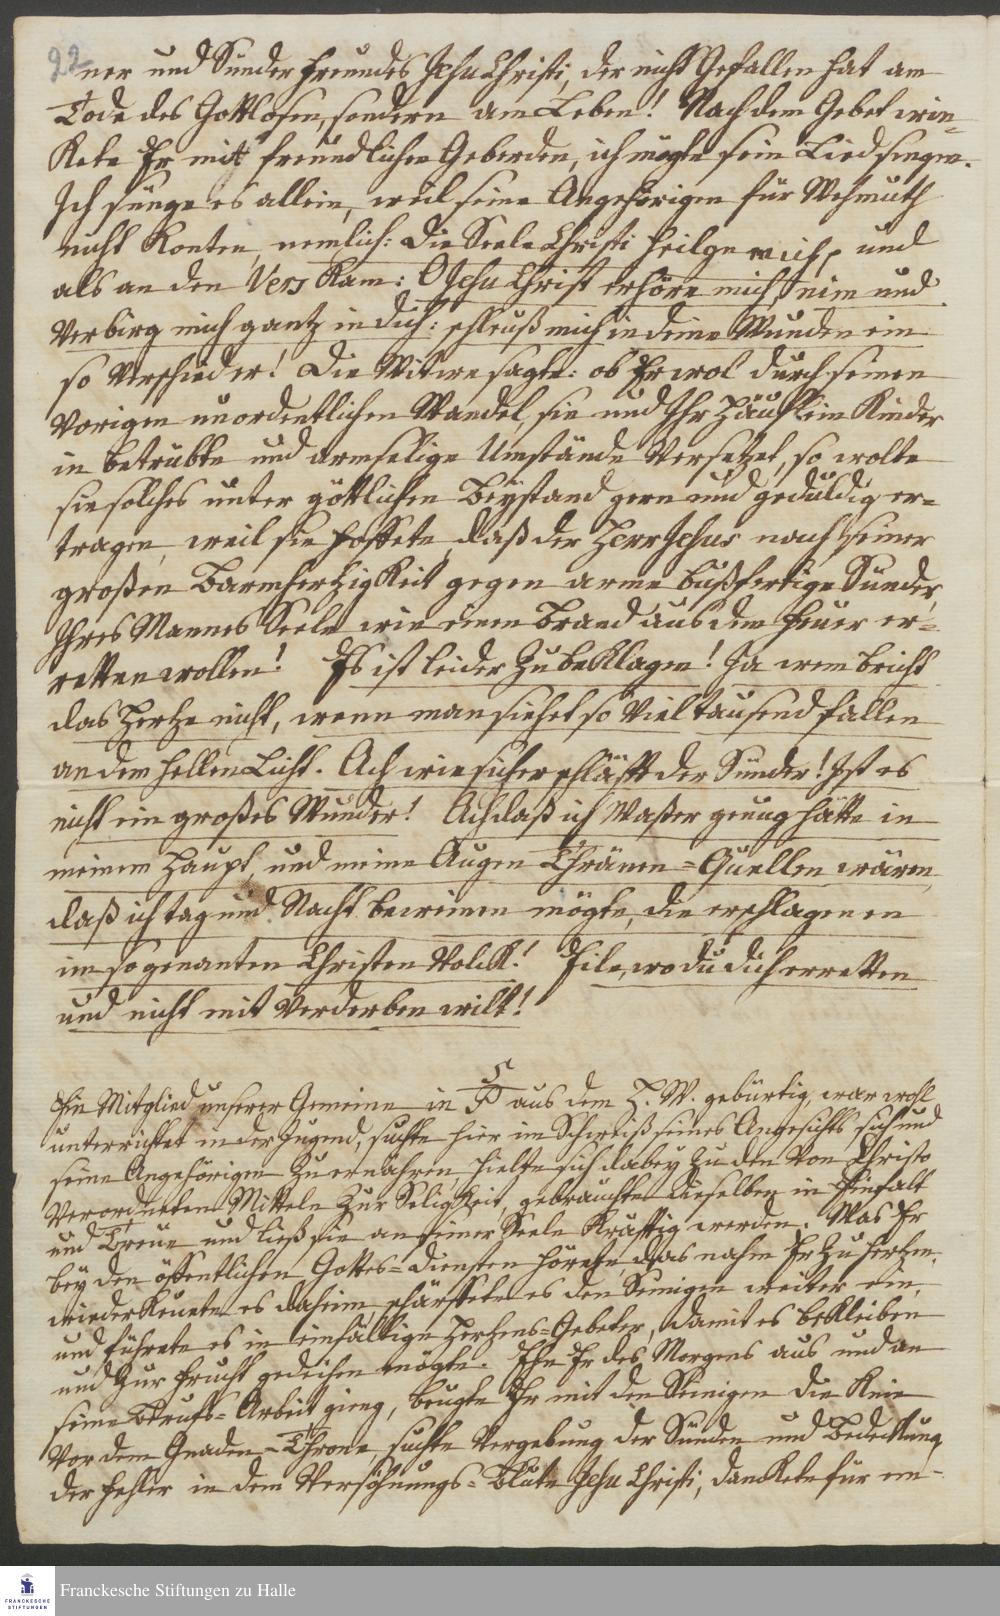 22
ner und Sünder Freundes Jesu Christi, der nicht Gefallen hat am
Tode des Gottlosen, sondern am Leben! Nach dem Gebet win-
kete Er mit freundlichen Geberden, ich mögte sein Lied singen.
Ich sunge es allein, weil seine Angehörigen für Wehmuth
nicht konten, nemlich: Die Seele Christi heilge mich, und
als an den Vers kam: O Jesu Christ erhöre mich, nim und
verbirg mich gantz in dich: schleuß mich in deine Wunden ein
so verschied er! Die Witwe sagte: ob Er wol durch seinen
vorigen unordentlichen Wandel, sie und Ihr Häuflein Kinder
in betrübte und armselige Umstände versetzet, so wolte
sie solches unter göttlichen Beystand gern und geduldig er-
tragen, weil sie hoffete, daß der Herr Jesus nach seiner
großen Barmherzigkeit gegen arme bußfertige Sünder,
Ihres Mannes Seele wie einen Brand aus dem Feuer er-
retten wollen! Es ist leider zu beklagen! Ja wem bricht
das Hertze nicht, wenn man siehet so viel tausend fallen
an dem hellen Licht. Ach wie sicher schläfft der Sünder! Ist es
nicht ein großes Wunder! Ach daß ich Waßer genug hätte in
meinem Haupt, und meine Augen Thränen-Quellen wären,
daß ich tag und Nacht beweinen mögte, die erschlagenen
im so genanten Christen Volck! Eile, wo du dich erretten
und nicht mit verderben wilt!
Ein Mitglied unserer Gemeine in P aus dem H. W. gebürtig, war wohl
unterrichtet in der Jugend, suchte hier im Schweiß seines Angesichts sich und
seine Angehörigen zu ernähren, hielte sich dabey zu den von Christo
verordneten Mitteln zur Seligkeit, gebrauchte dieselben in Einfalt
und Treue und ließ sie an seiner Seele kräftig werden. Was Er
bey den öffentlichen Gottes-Diensten hörete, das nahm Er zu Hertzen,
wiederkeuete es daheim, schärffete es den Seinigen weiter ein,
und führete es in einfältige Hertzens-Gebeter, damit es bekleiben
und zur Frucht gedeihen mögte. Ehe Er des Morgens aus und an
seine Berufs-Arbeit gieng, beugte Er mit den Seinigen die Knie
vor dem Gnaden-Throne, suchte Vergebung der Sünden und Bedeckung
der Fehler in dem Versöhnungs-Blute Jesu Christi, danckete für em-
Franckesche Stiftungen zu Halle
FRANCKESCHE
STIFTUNGEN